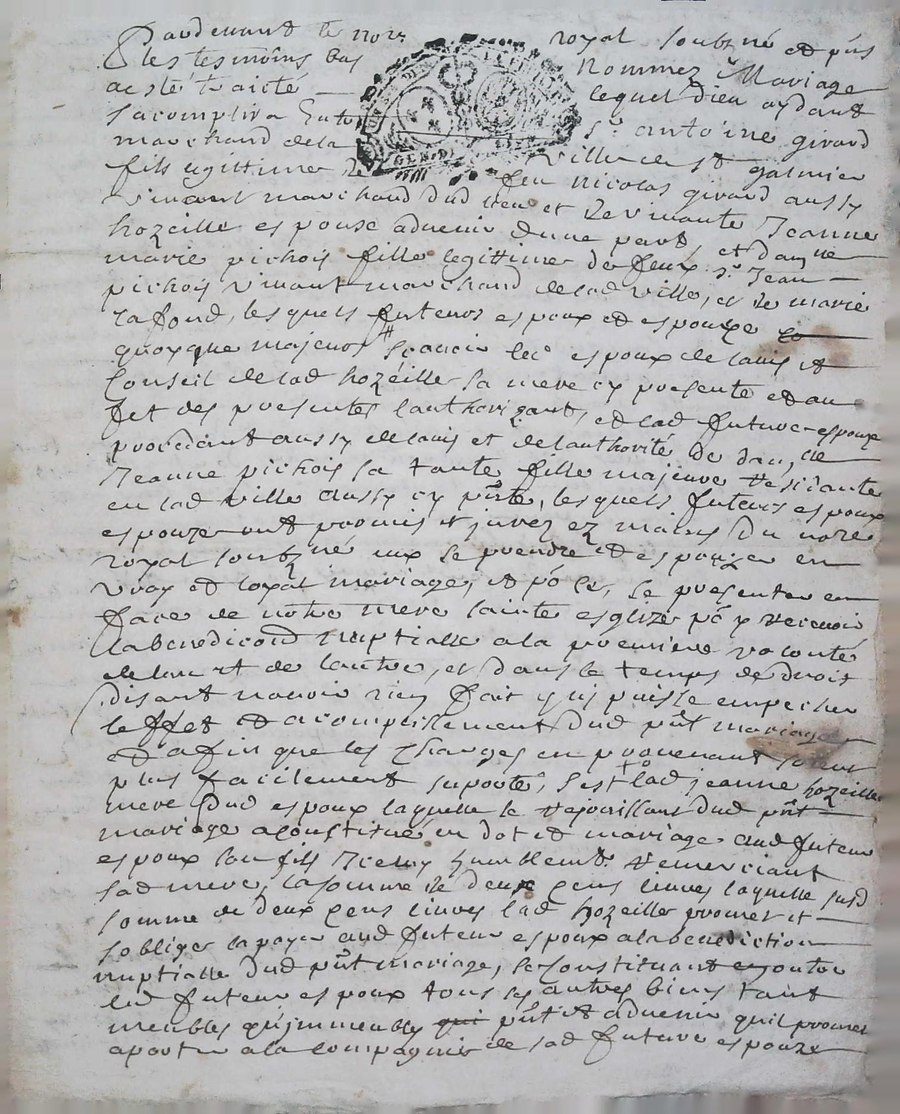 Pardevant le nore royal soubzné et pñs
les tesmoins bas nommez Mariage
a esté traicté lequel dieu aydant
sacomplira Entre Sr antoine girard
marchand de la ville de st galmier
fils legittime de feu nicolas girard aussy
vivant marchand dud lieu et de vivante Jeanne
hozeille espoux advenir dune part, et damlle
marie pichois fille legittime de feux sr Jean
pichois vivant marchand de lad ville, et de marie
lafond, lesquels futeurs espoux et espouze
quoyque majeurs scavoir led espoux de lavis et
Conseil de lad hozeille sa mere cy presente et au
fet des presentes lauthorizant, et lad future espouze
procedant aussy de lavis et de lauthorité de damlle
Jeanne pichois sa tante fille majeure residante
en lad ville aussy cy pñte, lesquels futeurs espoux
espouze ont promis et jurez ez mains du nore
royal soubzné eux se prendre et espouzer en
vray et loyal mariage, et pour ce, se presenter en
face de notre mere sainte esglize pour y recevoir
la benediction nuptialle a la premiere volonté
de lun et de lautre, et dans le temps de droit
disant navoir rien fait quj puisse empecher
leffet et acomplissement dud pñt mariage
et afin que les charges en provenant soient
plus facilement suporté, sest lad jeanne hozeille
mere dud espoux laquelle se rejouissant dud pñt
mariage a constitué en dot et mariage aud futeur
espoux son fils Jcelluy humblemt remerciant
sad mere, la somme de deux cens livres laquelle susd
somme de deux cens livres lad hozeille promet et
soblige la payer aud futeur espoux a la benediction
nuptialle dud pñt mariage, se constituant en outre
led futeur espoux tous ses autres biens tant
meubles qujmmeubles pñt et advenir quil promet
aporter a la compagnie de lad future espouze